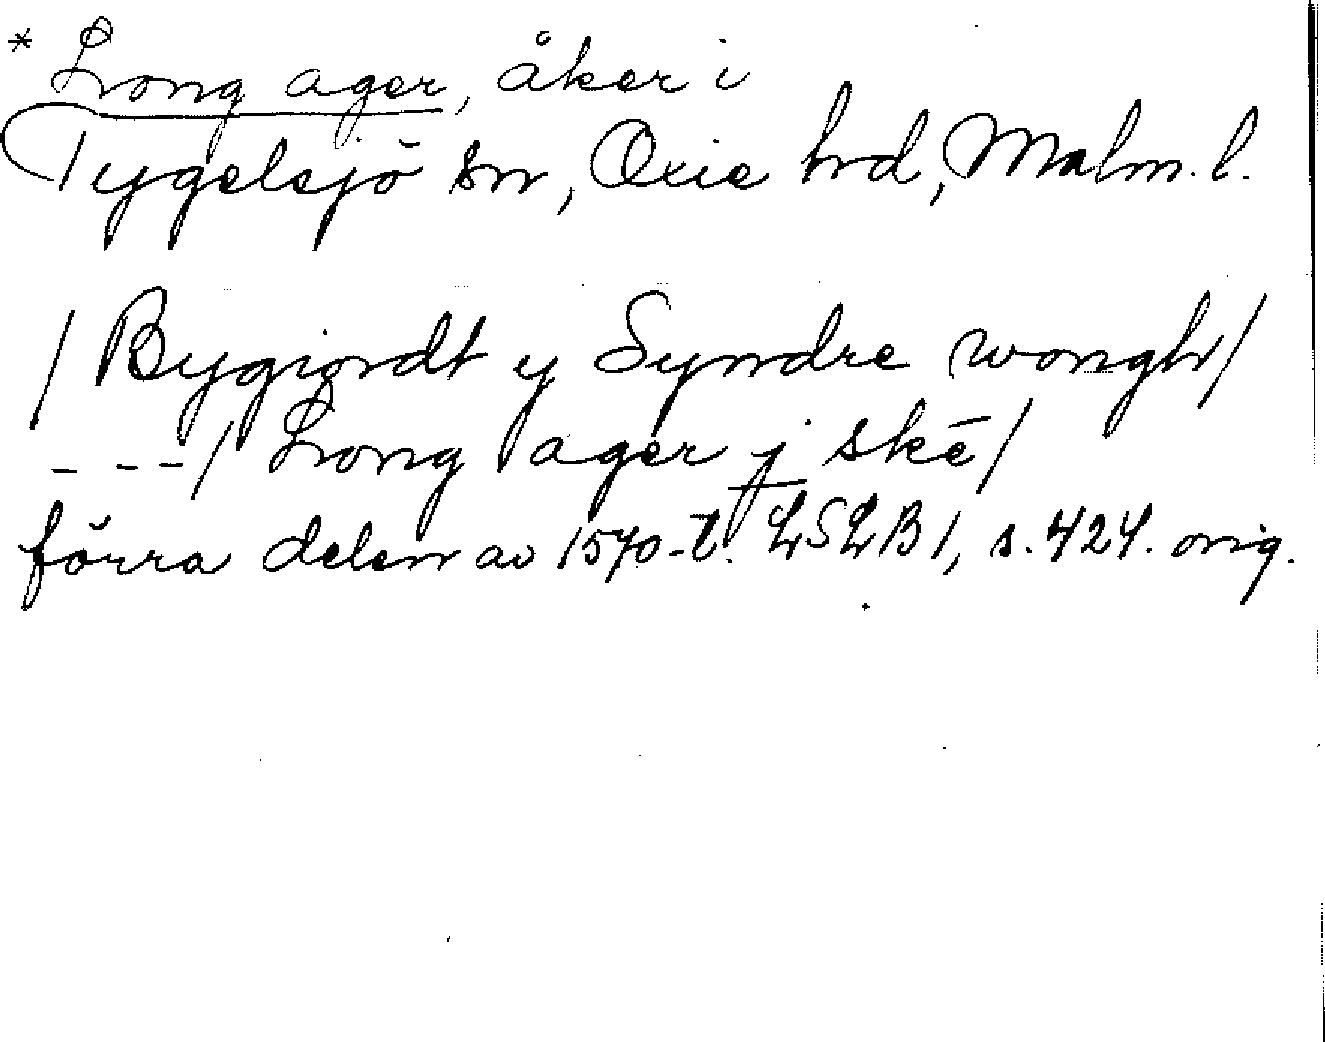 * Long ager, åker i
Tygelsjö sn, Oxie hd, Malm. l.
/ Bygiordt y Syndre wongh /
- - - / Long ager j skē /
förra delen av 1570-t. LSLB 1, s. 424. orig.